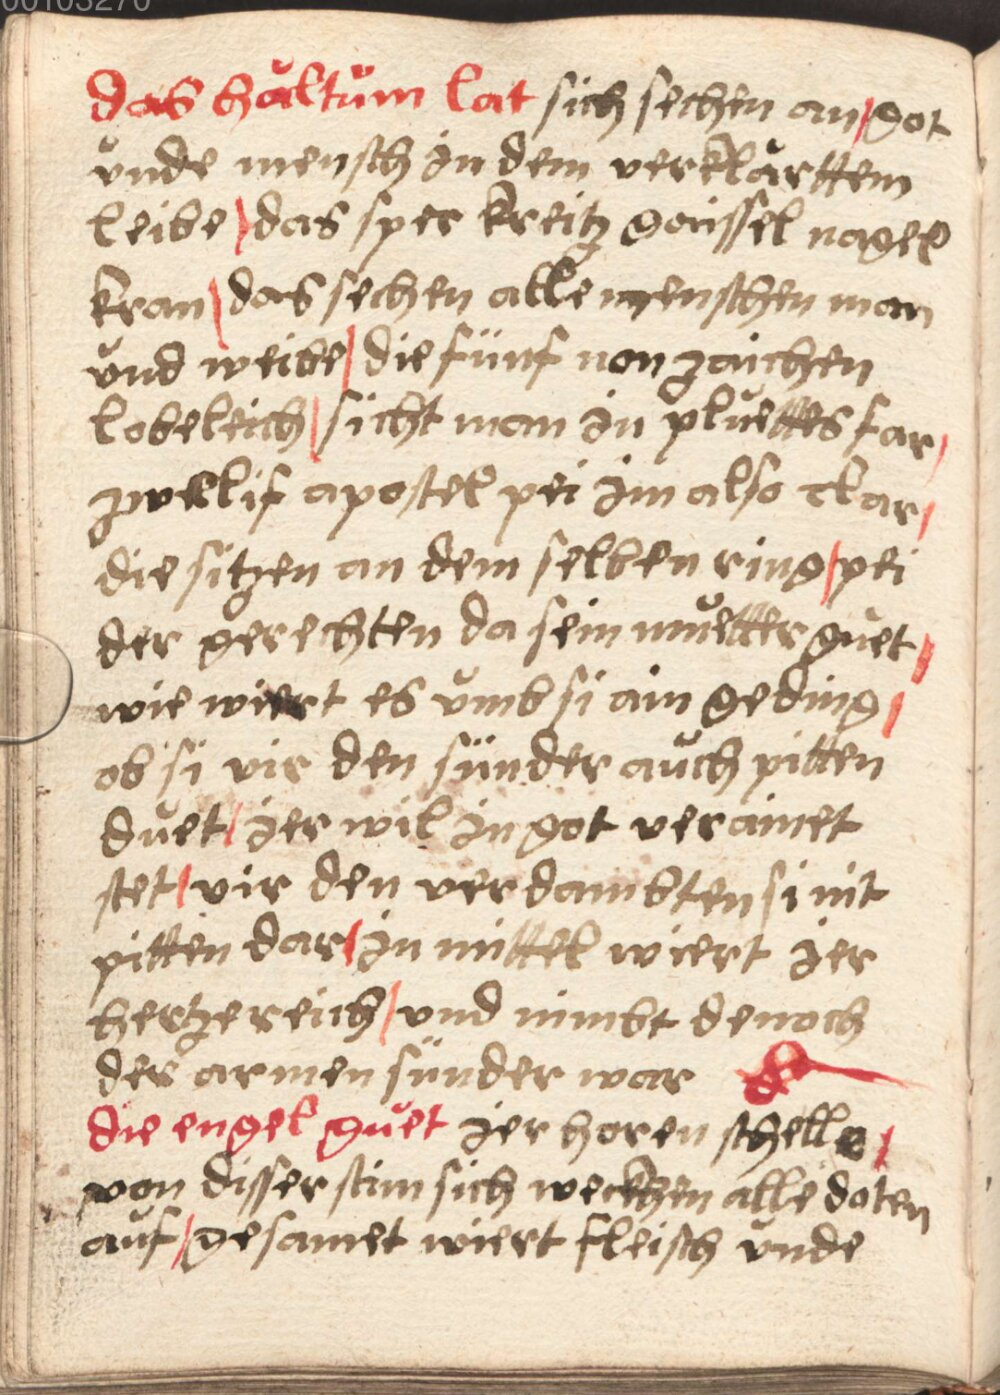 00103270
das haͤltuͦm lat sich sechen an / got
vnde mensch in dem verklaͤrttem
leibe / das sper kreitz gaissel nagel
kran / das sechen alle menschen man
vnd weibe / die fünf non zaichen
lobeleich / sicht man in pluettes far /
zwellif apostel pei im also clar /
die sitzen an dem selben ring / pei
der gerechten da sein muetter guet /
wie wiert es vmb si ain geding /
ob si vir den sünder auch pitten
duet / ier wil in got verainet
stet / vir den verdambten si nit
pitten dar / in mittel wiert ier
hertzereich / vnd nimbt denoch
der armen sünder war
die engel guet ier horen schelle /
von disser stim sich weckhen alle doten
auf / gesamet wiert fleisch vnde